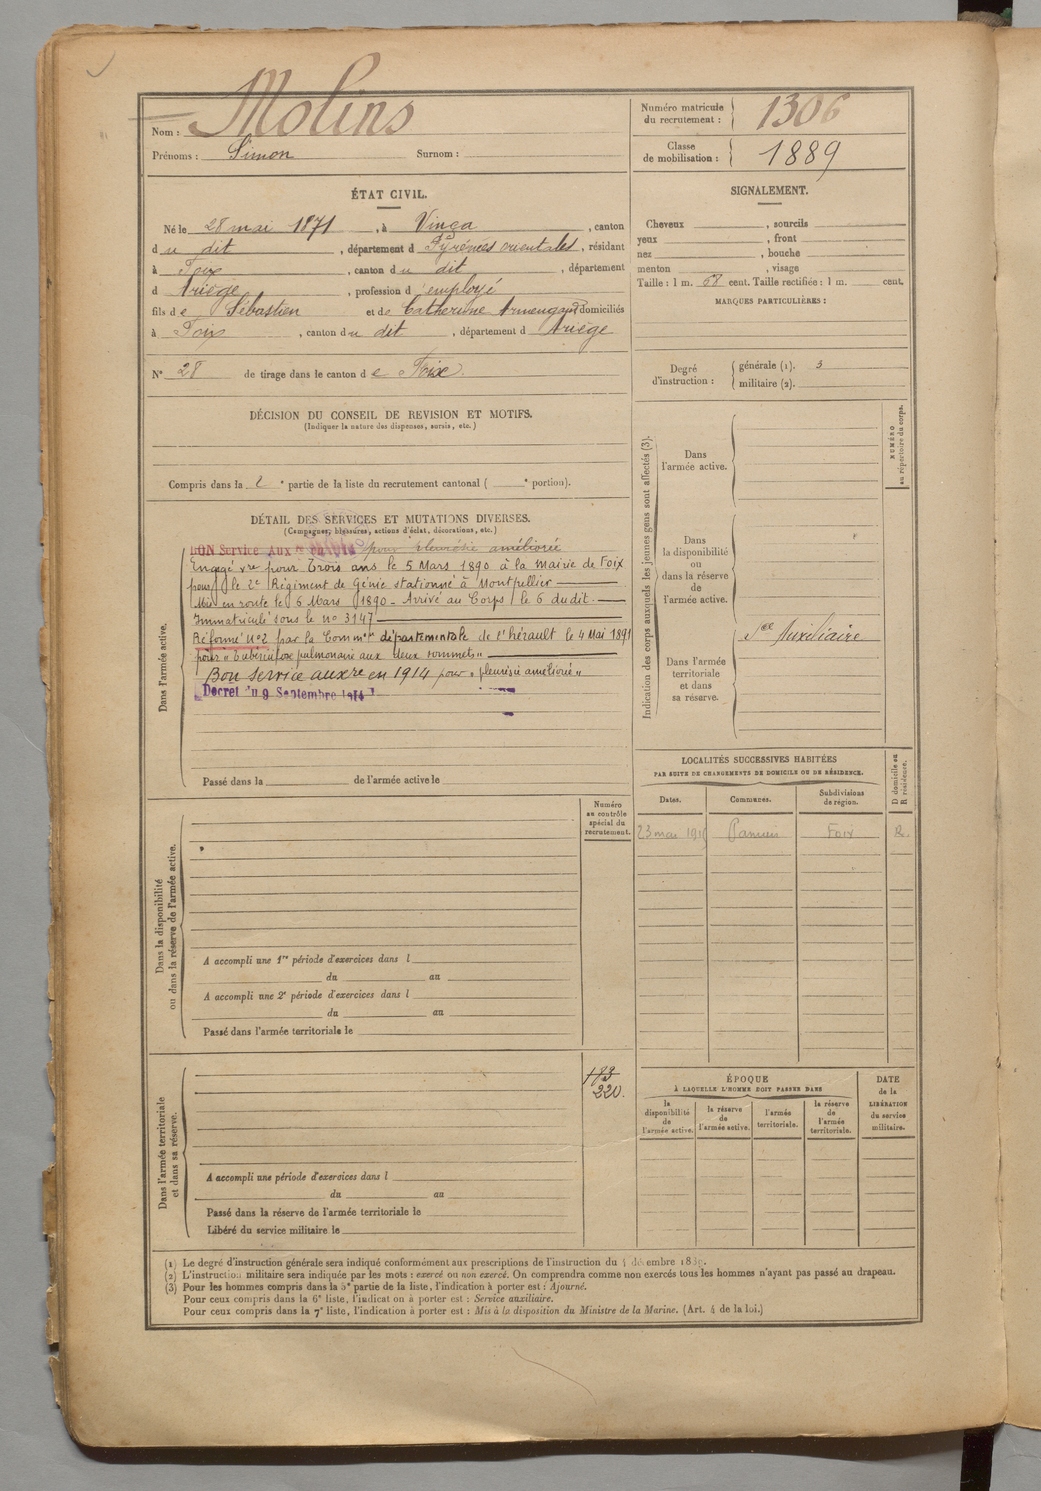 Nom : Molins
Prénoms : Simon Surnom :
Numéro matricule du recrutement : 1306
Classe de mobilisation : 1889
ÉTAT CIVIL.
Né le 28 mai 1871, à Vinça, canton
d u dit, département d Pyrénées orientales, résidant
à Foix, canton d u dit, département
d Ariège, profession d employé
fils d e Sébastien et d e Catherine Armengaud domiciliés
à Foix, canton d u dit, département d Ariège
N° 28 de tirage dans le canton d e Foix.
DÉCISION DU CONSEIL DE REVISION ET MOTIFS.
(Indiquer la nature des dispenses, sursis, etc.)
Compris dans la 2 e partie de la liste du recrutement cantonal ( e portion).
SIGNALEMENT.
Cheveux , sourcils
yeux , front
nez , bouche
menton , visage
Taille : 1 m. 68 cent. Taille rectifiée : 1 m. cent.
MARQUES PARTICULIÈRES :
Degré d'instruction :
générale (1). 3
militaire (2).
DÉTAIL DES SERVICES ET MUTATIONS DIVERSES.
(Campagnes, blessures, actions d'éclat, décorations, etc.)
Dans l'armée active.
BON Service Aux re en 1914 pour pleurésie améliorée
Engagé v.re pour Trois ans le 5 Mars 1890 à la mairie de Foix
pour le 2e Régiment de Génie stationné à Montpellier
Mis en route le 6 Mars 1890 - Arrivé au Corps le 6 du dit.
Immatriculé sous le no 3147
Réformé n°2 par la Comm.on départementale de l'hérault le 4 Mai 1891
pour "tuberculose pulmonaire aux deux sommets"
Bon service auxre en 1914 pour "pleurésie améliorée"
Décret du 9 Septembre 1914
Passé dans la de l'armée active le
Indication des corps auxquels les jeunes gens sont affectés (3).
NUMÉRO au répertoire du corps.
Dans l'armée active.
Dans la disponibilité ou dans la réserve de l'armée active.
Dans l'armée territoriale et dans sa réserve.
Sce Auxiliaire
LOCALITÉS SUCCESSIVES HABITÉES
PAR SUITE DE CHANGEMENTS DE DOMICILE OU DE RÉSIDENCE.
D domicile ou R résidence.
Dates. Communes. Subdivisions de région.
23 mai Pamiers Foix R.
Numéro au contrôle spécial du recrutement.
Dans la disponibilité ou dans la réserve de l'armée active.
A accompli une 1re période d'exercices dans l
du au
A accompli une 2e période d'exercices dans l
du au
Passé dans l'armée territoriale le
Dans l'armée territoriale et dans sa réserve.
220.
A accompli une période d'exercices dans l
du au
Passé dans la réserve de l'armée territoriale le
Libéré du service militaire le
ÉPOQUE
À LAQUELLE L'HOMME DOIT PASSER DANS
la disponibilité de l'armée active.
la réserve de l'armée active.
l'armée territoriale.
la réserve de l'armée territoriale.
DATE de la LIBÉRATION du service militaire.
(1) Le degré d'instruction générale sera indiqué conformément aux prescriptions de l'instruction du décembre
(2) L'instruction militaire sera indiquée par les mots : exercé ou non exercé. On comprendra comme non exercés tous les hommes n'ayant pas passé au drapeau.
(3) Pour les hommes compris dans la 5e partie de la liste, l'indication à porter est : Ajourné.
Pour ceux compris dans la 6e liste, l'indication à porter est : Service auxiliaire.
Pour ceux compris dans la 7e liste, l'indication à porter est : Mis à la disposition du Ministre de la Marine. (Art. 4 de la loi.)